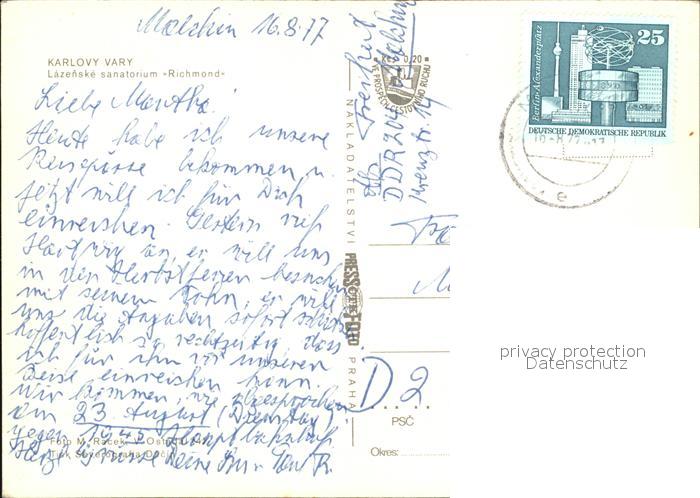 Malchin 16.8.77
KARLOVY VARY
Lázeňské sanatorium »Richmond«
Liebe Martha!
Heute habe ich unsere
Reisepässe bekommen u.
jetzt will ich für Dich
einreichen. Gestern rief
Hartwig an, er will uns
in den Herbstferien besuchen
mit seinem Sohn, er will
uns die Angaben sofort schicken
hoffentlich so rechtzeitig, dass
ich für ihn vor unserer
Reise einreichen kann.
Wir kommen, wie abgesprochen
am 23. August (Dienstag)
gegen 1945 Hauptbahnhof
Herzl. Grüsse Deine
Foto M. Raček,
Tisk Severografia Děčín
Kčs 0,20
NAKLADATELSTVÍ
PRESSFOTO
PRAHA
Abs.
DDR 204 Malchin
D 2
PSČ
Okres:
25
Berlin-Alexanderplatz
DEUTSCHE DEMOKRATISCHE REPUBLIK
privacy protection
Datenschutz